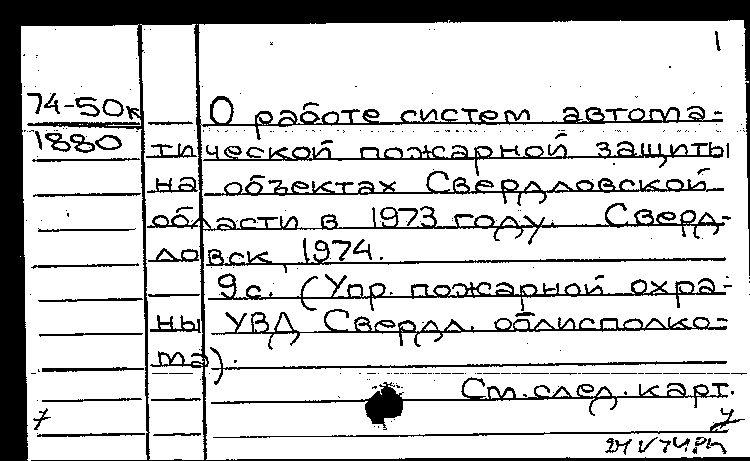 1
74-50к
1880
О работе систем автома-
тической пожарной защиты
на объектах Свердловской
области в 1973 году. Сверд-
ловск, 1974.
9с. (Упр. пожарной охра-
ны УВД Свердл. облисполко-
ма).
См. след. карт.